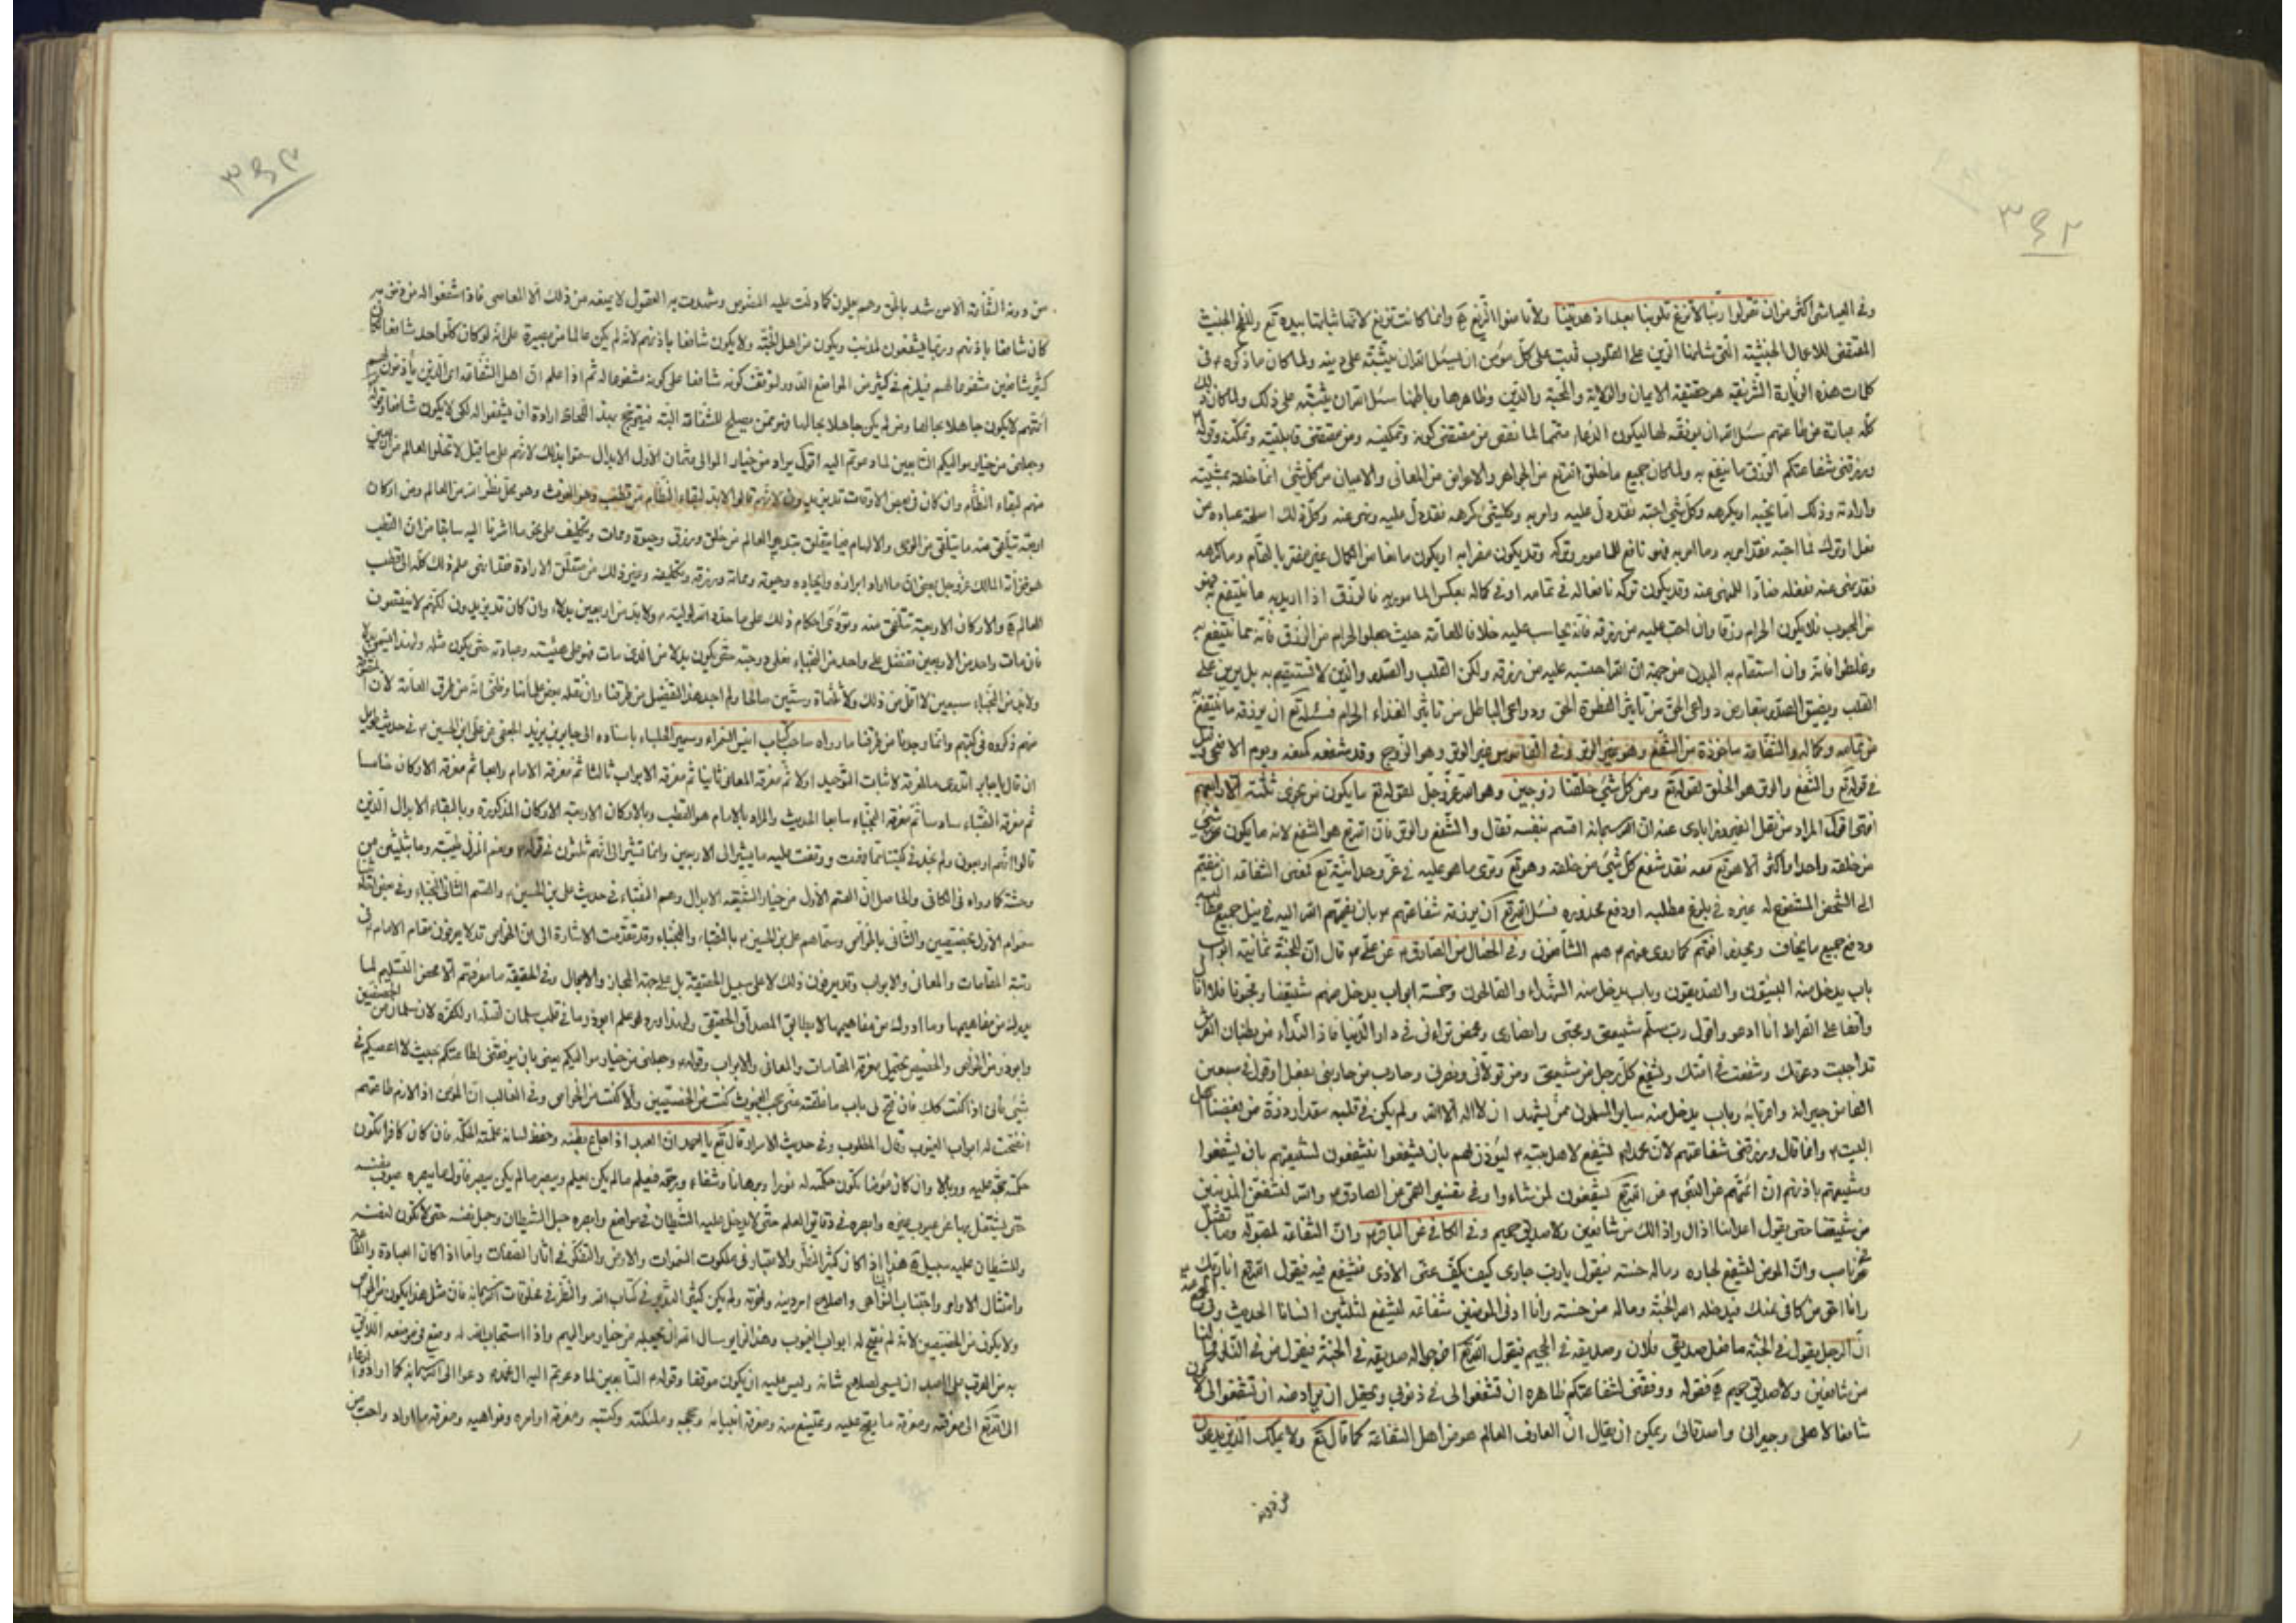 ٣٤٢
وفى العياشى اكثر من ان تقولوا ربنا لا تزغ قلوبنا بعد اذ هديتنا ولا تأمنوا الزيغ وانما كانت تزيغ لانها بيده تع
المقتضى للاعمال الخبيثة التى شانها الزين على القلوب فيجب على كل مؤمن ان يسئل الله ان يثبته على دينه ولما كان ما ذكره ع فى
كلمات هذه الزيارة الشريفة هو حقيقة الايمان والولاية والمحبة والدين وظاهرها وباطنها سئل الله ان يثبته على ذلك ولما كان ذلك
كله عبارة عن طاعتهم سئل الله ان يوفقه لها ليكون الدعاء متمما لما نقص من مقتضى كونه وتمكينه ومن مقتضى قابليته وتمكنه وقوله
ورزقنى شفاعتكم الرزق ما ينتفع به ولما كان جميع ما خلق الله تع من الجواهر والاعراض من المعانى والاعيان من كل شئ انما خلقه بمشيته
وارادته وذلك اما يحبه او يكرهه وكل شئ احبه فقد دل عليه وامر به وكل شئ كرهه فقد دل عليه ونهى عنه وكل ذلك لمصلحة عباده من
فعل او ترك فما احبه فقد امر به وما امر به فهو نافع للمأمور وتركه وقد يكون مضرا به او يكون مانعا من الكمال غير مضر بالتمام وما كرهه
فقد نهى عنه ففعله ضار للمنهى عنه وقد يكون تركه نافعا له فى تمامه او فى كماله بعكس المأمور به فالرزق اذا اريد به ما ينتفع به فهو
من المحبوب فلا يكون الحرام رزقا وان احتسب عليه من رزقه فانه يحاسب عليه خلافا للعامة حيث جعلوا الحرام من الرزق فانه مما ينتفع به
وغلطوا فانه وان استقام به البدن من جهة ان الله احتسبه عليه من رزقه ولكن القلب والصدر والدين لا تستقيم به بل يرين على
القلب ويضيق الصدر بتعارض دواعى الحق من تأثير الفطرة الحق ودواعى الباطل من تأثير الغذاء الحرام فسئله تع ان يرزقه ما ينتفع
من تمامه وكماله والشفاعة مأخوذة من الشفع وهو غير الوتر وفى القاموس غير الوتر وهو الزوج وقد شفعه كمنعه ويوم الاضحى وقيل
فى قوله تع والشفع والوتر هو الخلق لقوله تع ومن كل شئ خلقنا زوجين وهو الله عز وجل لقوله تع ما يكون من نجوى ثلثة الا هو رابعهم
انتهى اقول المراد من نقل الفيروزابادى عنه ان الله سبحانه اقسم بنفسه فقال والشفع والوتر فان الله تع هو الشفع لانه ما يكون من شئ
من خلقه واحدا واكثر الا هو تع معه فقد شفع كل شئ من خلقه وهو تع وترى ما هو عليه فى عز وحدانيته تع فمعنى الشفاعة ان ينضم
الى الشخص المشفوع له غيره فى بلوغ مطلبه او دفع محذوره فسئل الله تع ان يرزقه شفاعتهم ع بان يضمهم الله اليه فى نيل جميع مطالبه
ودفع جميع ما يخاف ويحذر كما روى عنهم ع هم الشافعون وفى الخصال عن الصادق ع عن على ع قال ان للجنة ثمانية ابواب
باب يدخل منه النبيون والصديقون وباب يدخل منه الشهداء والصالحون وخمسة ابواب يدخل منهم شيعتنا ومحبونا فلا ازال
واقفا على الصراط انا ادعو واقول رب سلم شيعتى ومحبى وانصارى ومن توالانى فى دار الدنيا فاذا النداء من بطنان العرش
قد اجيبت دعوتك وشفعت فى امتك ويشفع كل رجل من شيعتى ومن تولانى ونصرنى وحارب من حاربنى بفعل او قول فى سبعين
الفا من جيرانه واقربائه وباب يدخل منه ساير المسلمون ممن يشهد ان لا اله الا الله ولم يكن فى قلبه مقدار ذرة من بغضنا اهل
البيت ع وانما قال ورزقنى شفاعتهم لان محمدا يشفع لاهل بيته ع ليؤذن لهم بان يشفعوا فيشفعون لشيعتهم بان يشفعوا
وشيعتهم باذنهم ان ائمتهم عن النبى ع عن الله تع يشفعون لمن شاءوا وفى تفسير القمى عن الصادق ع والله لنشفعن المذنبين
من شيعتنا حتى يقول اعداؤنا اذا راوا ذلك فما لنا من شافعين ولا صديق حميم وفى الكافى عن الباقر ع وان الشفاعة لمقبولة وما تقبل
فى ناصب وان المؤمن ليشفع لجاره وماله حسنة فيقول يا رب جارى كان يكف عنى الاذى فيشفع فيه فيقول الله تع انا ربك
وانا احق من كافى عنك فيدخله الله الجنة وماله من حسنة وان ادنى المؤمنين شفاعة ليشفع لثلثين انسانا الحديث وفى المجمع
ان الرجل يقول فى الجنة ما فعل صديقى فلان وصديقه فى الجحيم فيقول الله تع اخرجوا له صديقه فى الجنة فيقول من فى النار فما لنا
من شافعين ولا صديق حميم فقوله ووفقنى لشفاعتكم ظاهره ان تشفعوا لى فى ذنوبى ويحتمل ان يراد منه ان تشفعوا لى
شافعا لاهلى وجيرانى واصدقائى ويمكن ان يقال ان العارف العالم هو من اهل الشفاعة كما قال تع ولا يملك الذين يدعون
من دونه
٣٤٣
من دونه الشفاعة الا من شهد بالحق وهم يعلمون كما دلت عليه النصوص وشهدت به العقول لا يمنعه من ذلك الا المعاصى فاذا شفعوا له من ذنوبه
كان شافعا باذنهم وربما يشفعون لمذنب ويكون من اهل الجنة ولا يكون شافعا باذنهم لانه لم يكن عالما من بصيرة على انه لو كان كل واحد شافعا
كثير شافعين مشفوعا لهم فيلزم فى كثير من المواضع الدور لتوقف كونه شافعا على كونه مشفوعا له ثم اذا علم ان اهل الشفاعة اى الذين يأذنون لهم
ائمتهم لا يكون جاهلا بحالها ومن لم يكن جاهلا بحالها فهو ممن يصلح للشفاعة البتة فيتوجه بهذا اللحاظ ارادة ان يشفعوا له لكى يكون شافعا
وجعلنى من خيار مواليكم التابعين لما دعوتم اليه اقول يراد من خيار الموالى قسمان الاول الابدال سموا بذلك لانهم على ما قيل لا تخلوا العالم من اربعين
منهم لبقاء النظام وان كان فى بعض الاوقات قد يزيدون لانهم قالوا لا بد لبقاء النظام من قطب وهو الغوث وهو محل نظر الله من العالم ومن اركان
اربعة تتلقى منه ما يتلقى من الوحى والالهام فيما يتعلق بتدبير العالم من خلق ورزق وحيوة وممات وتكليف على نحو ما اشرنا اليه سابقا من ان القطب
هو خزانة المالك عز وجل بمعنى ان ما اراد ابرازه وايجاده وحيوته ومماته ورزقه وتكليفه وغير ذلك من متعلق الارادة
العالم والاركان الاربعة تتلقى منه وتؤدى احكام ذلك على ما حده الله لوليه ع ولا بد من اربعين بدلا وان كان قد يزيدون لكنهم لا ينقصون
فان مات واحد من الاربعين تفضل على واحد من النجباء فعلى درجته حتى يكون بدلا من الذى مات
ولا بد من النجباء سبعين لا اقل من ذلك وثلاثمائة وستين صالحا ولم اجد هذا التفصيل من طرقنا وان نقله بعض علمائنا وظنى انه من طرق العامة لان
منهم ذكروه فى كتبهم وانما وجدنا من طرقنا ما رواه صاحب كتاب انيس السمراء وسمير الجلساء باسناده الى جابر بن يزيد الجعفى عن على بن الحسين ع فى حديث طويل
ان قال يا جابر اتدرى ما المعرفة المعرفة اثبات التوحيد اولا ثم معرفة المعانى ثانيا ثم معرفة الابواب ثالثا ثم معرفة الامام رابعا ثم معرفة الاركان خامسا
ثم معرفة النقباء سادسا ثم معرفة النجباء سابعا الحديث والمراد بالامام هو القطب وبالاركان الاربعة الاركان المذكورة وبالنقباء الابدال الذين
قالوا انهم اربعون ولم نجد فى كتبنا ما وقفت عليه ما يشير الى الاربعين وانما تشير الى انهم ثلثون فى قوله ع ونعم المنزل طيبة وما بثلثين من
وحشة كما رواه فى الكافى والحاصل ان القسم الاول من خيار الشيعة الابدال وهم النقباء فى حديث على بن الحسين ع والقسم الثانى النجباء
سموا الاول بخصيصين والثانى بالخواص وسماهم على بن الحسين ع بالنقباء والنجباء وقد تقدمت الاشارة الى ان الخواص قد لا يعرفون مقام الامام ع فى
رتبة المقامات والمعانى والابواب وقد يعرفون ذلك لا على سبيل الحقيقة بل على جهة المجاز والاجمال وفى الحقيقة ما معرفتهم الا محض التسليم لما
يدركه من مفاهيمها وما ادركه من مفاهيمها لا يطابق المصداق الحقيقى ولهذا ورد لو علم ابوذر ما فى قلب سلمان لقتله او لكفره لان سلمان من الخصيصين
وابوذر من الخواص والخصيص يحتمل معرفة المقامات والمعانى والابواب وقوله ع وجعلنى من خيار مواليكم يعنى بان يوفقنى لطاعتكم بحيث لا اعصيكم فى
شئ فانى اذا كنت كذلك فان فتح لى باب ما غلقته عنى حجب الغيوب كنت من الخصيصين والا كنت من الخواص وفى الغالب ان المؤمن اذا لازم طاعتهم
انفتحت له ابواب الغيوب ونال المطلوب وفى حديث الاسراء قال تع يا احمد ان العبد اذا جاع بطنه وحفظ لسانه علمته الحكمة فان كان كافرا تكون
حكمته حجة عليه ووبالا وان كان مؤمنا تكون حكمته له نورا وبرهانا وشفاء ورحمة فيعلم ما لم يكن يعلم ويبصر ما لم يكن يبصر فاول ما يبصره عيوب نفسه
حتى يشتغل بها عن عيوب غيره وابصره فى دقائق العلم حتى لا يدخل عليه الشيطان
وللشيطان عليه سبيل هذا اذا كان كثير النظر والاعتبار فى ملكوت السموات والارض والتفكر فى اثار الصفات واما اذا كان العبادة
وامتثال الاوامر واجتناب النواهى واصلاح امر دينه واخرته ولم يكن كثير التدبر فى كتاب الله والنظر فى مخلوقات الله سبحانه فان مثل هذا يكون من الخواص
ولا يكون من الخصيصين لانه لم يفتح له ابواب الغيوب وهذا الزاير سال الله ان يجعله من خيار مواليهم واذا استجاب الله له
به من القرب على العبد ان يسعى لصلاح شانه وليس عليه ان يكون موفقا وقوله ع التابعين لما دعوتم اليه ال محمد ع دعوا الى الله سبحانه كما اراد
الله تع الى معرفته ومعرفة ما يصح عليه ويمتنع منه ومعرفة انبيائه وحججه وملئكته وكتبه ومعرفة اوامره ونواهيه ومعرفة ما اراد واحب من